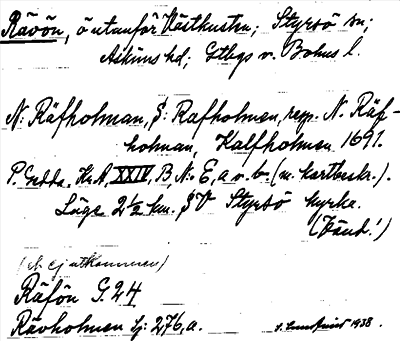 Rävön, ö utanför Västkusten; Styrsö sn;
Askims hd; Gtbgs o. Bohus l.
N: Räfholman, S: Rafholmen, resp. N. Räf-
holman, Kalfholmen 1691.
P. Gedda, Kr.A, XXIV, B, No E, a o. b. (m. kartbeskr.).
Läge 2½ km. SV Styrsö kyrka.
(Känd!)
(ej utkommen)
Räfön G. 24
Rävholmen Sj: 276, a.
1938.